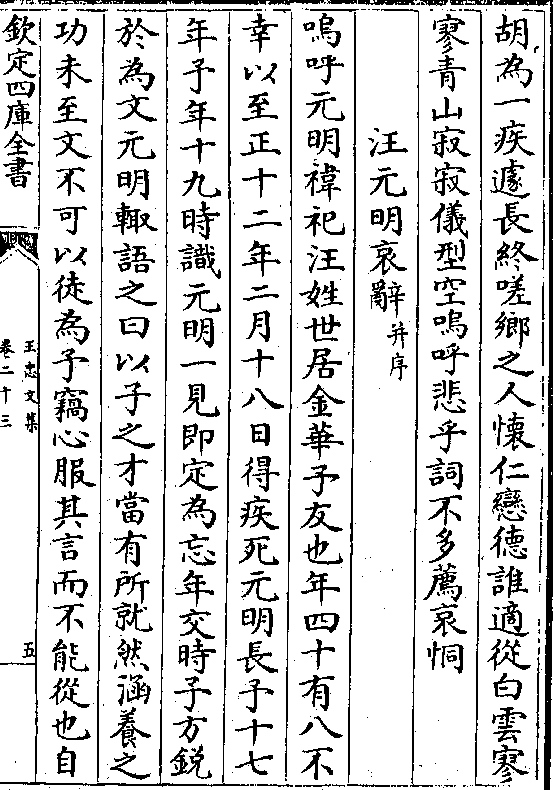 胡為一疾遽長終嗟鄉之人懷仁戀德誰適從白雲寥
寥青山寂寂儀型空嗚呼悲乎詞不多薦哀恫
汪元明哀辭并序
嗚呼元明褘祀汪姓世居金華予友也年四十有八不
幸以至正十二年二月十八日得疾死元明長予十七
年予年十九時識元明一見即定為忘年交時予方銳
於為文元明輙語之曰以子之才當有所就然涵養之
功未至文不可以徒為予竊心服其言而不能從也自
欽定四庫全書
王忠文集
卷二十三
五